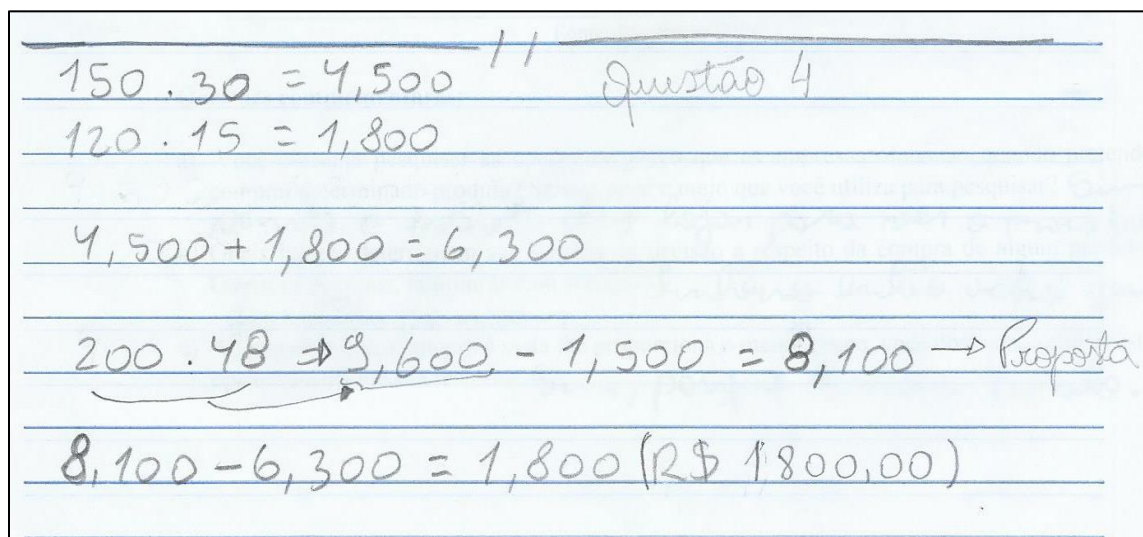 150 . 30 = 4,500
Questão 4
120 . 15 = 1,800
4,500 + 1,800 = 6,300
200 . 48 ⇒ 9,600 - 1,500 = 8,100 → Proposta
8,100 - 6,300 = 1,800 (R$ 1,800,00)